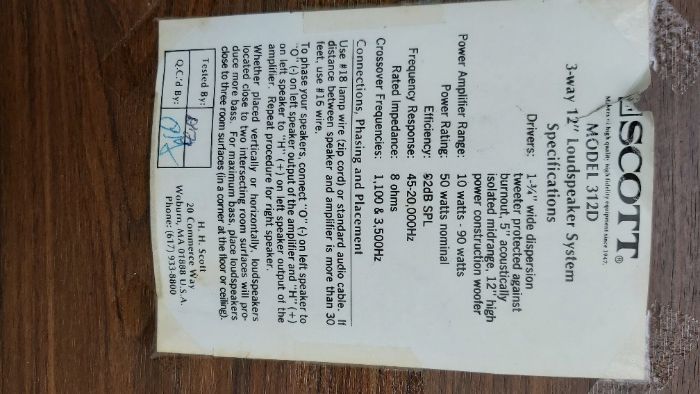 SCOTT®
Makers of high quality high fidelity equipment since 1947.
MODEL 312D
3-way 12" Loudspeaker System
Specifications
Drivers: 1-¾" wide dispersion
tweeter protected against
burnout, 5" acoustically
isolated midrange, 12" high
power construction woofer
Power Amplifier Range: 10 watts - 90 watts
Power Rating: 50 watts nominal
Efficiency: 92dB SPL
Frequency Response: 45-20,000Hz
Rated Impedance: 8 ohms
Crossover Frequencies: 1,100 & 3,500Hz
Connections, Phasing and Placement
Use #18 lamp wire (zip cord) or standard audio cable. If
distance between speaker and amplifier is more than 30
feet, use #16 wire.
To phase your speakers, connect "O" (-) on left speaker to
"O" (-) on left speaker output of the amplifier and "H" (+)
on left speaker to "H" (+) on left speaker output of the
amplifier. Repeat procedure for right speaker.
Whether placed vertically or horizontally, loudspeakers
located close to two intersecting room surfaces will pro-
duce more bass. For maximum bass, place loudspeakers
close to three room surfaces (in a corner at the floor or ceiling).
Tested By:
Q.C.'d By:
H. H. Scott
20 Commerce Way
Woburn, MA 01888 U.S.A.
Phone: (617) 933-8800